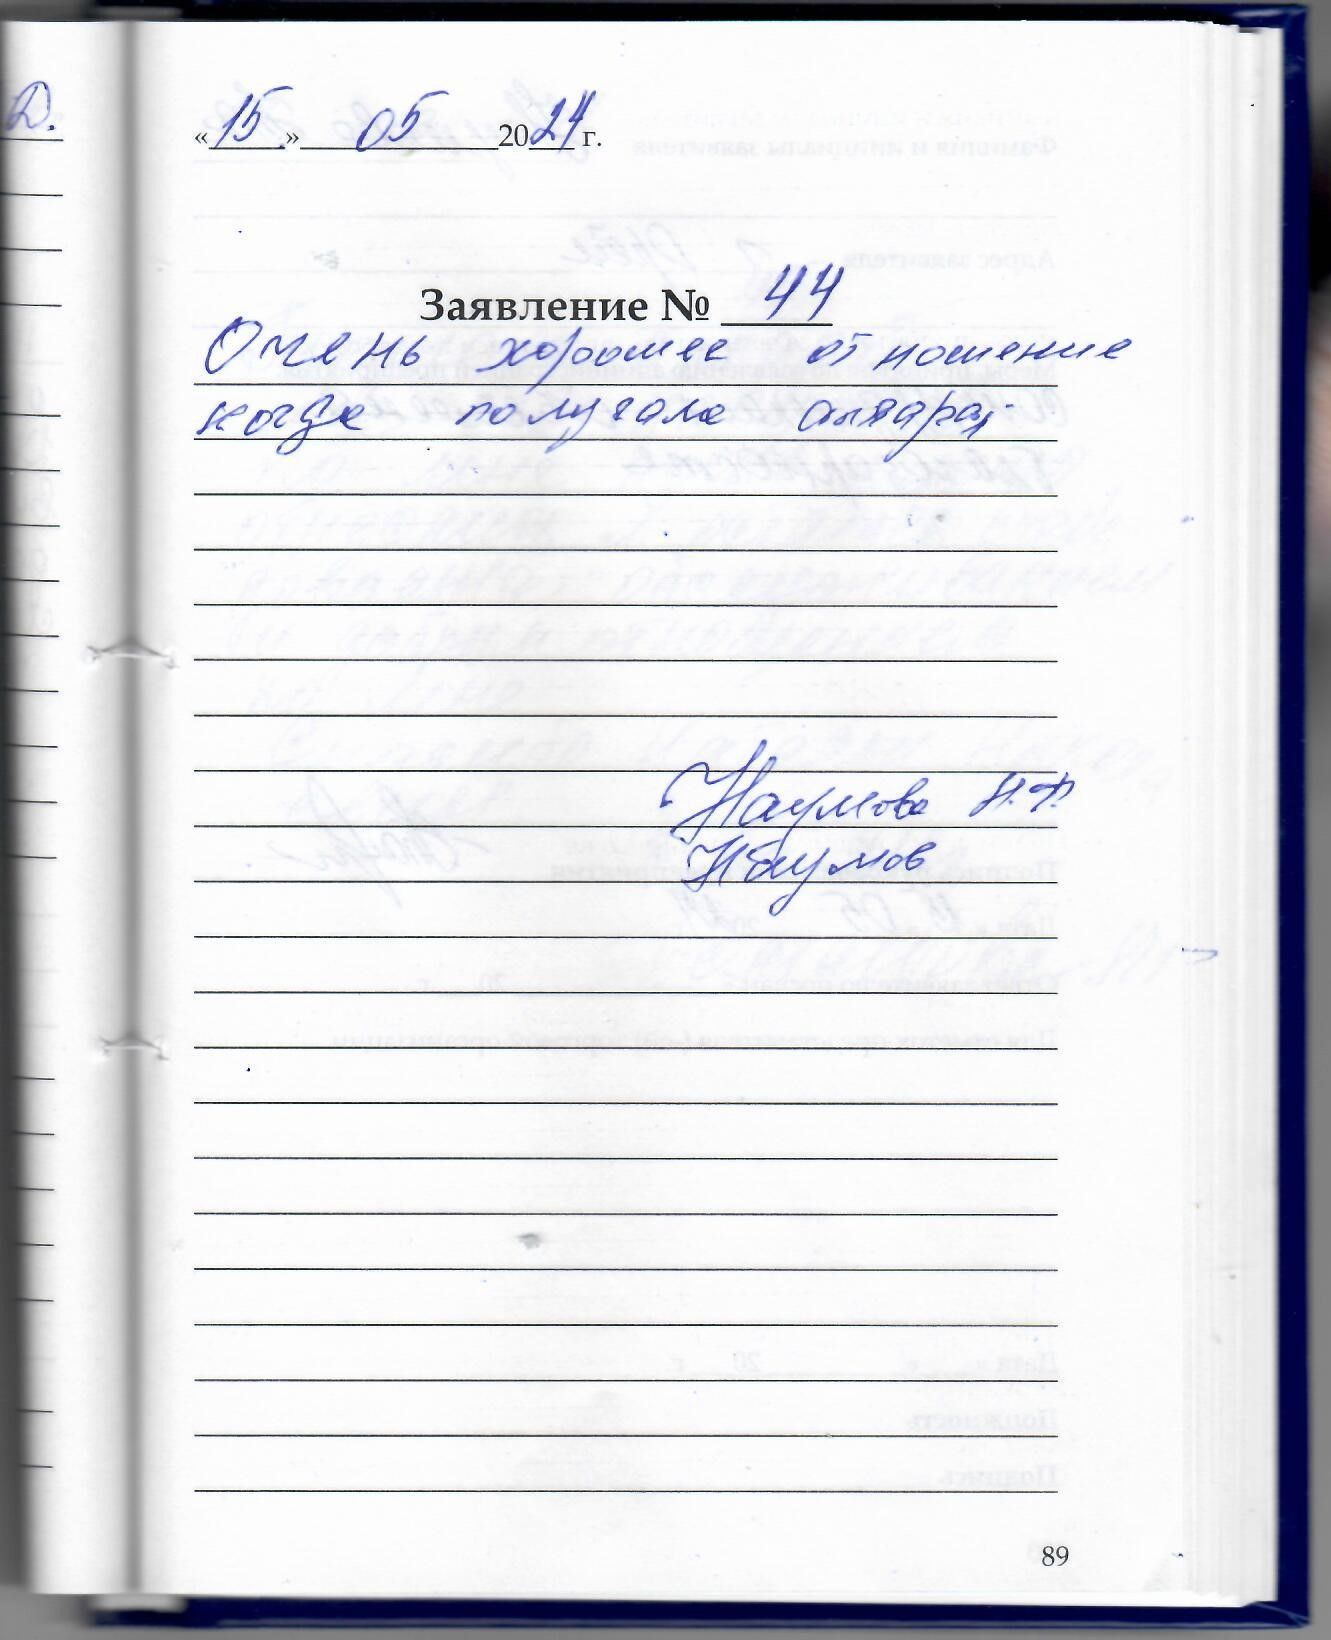 Д.
«15» 05 2024 г.
Заявление № 44
Очень хорошее отношение
когда получала аппарат
Наумова Н.Ф.
ННаумов
89